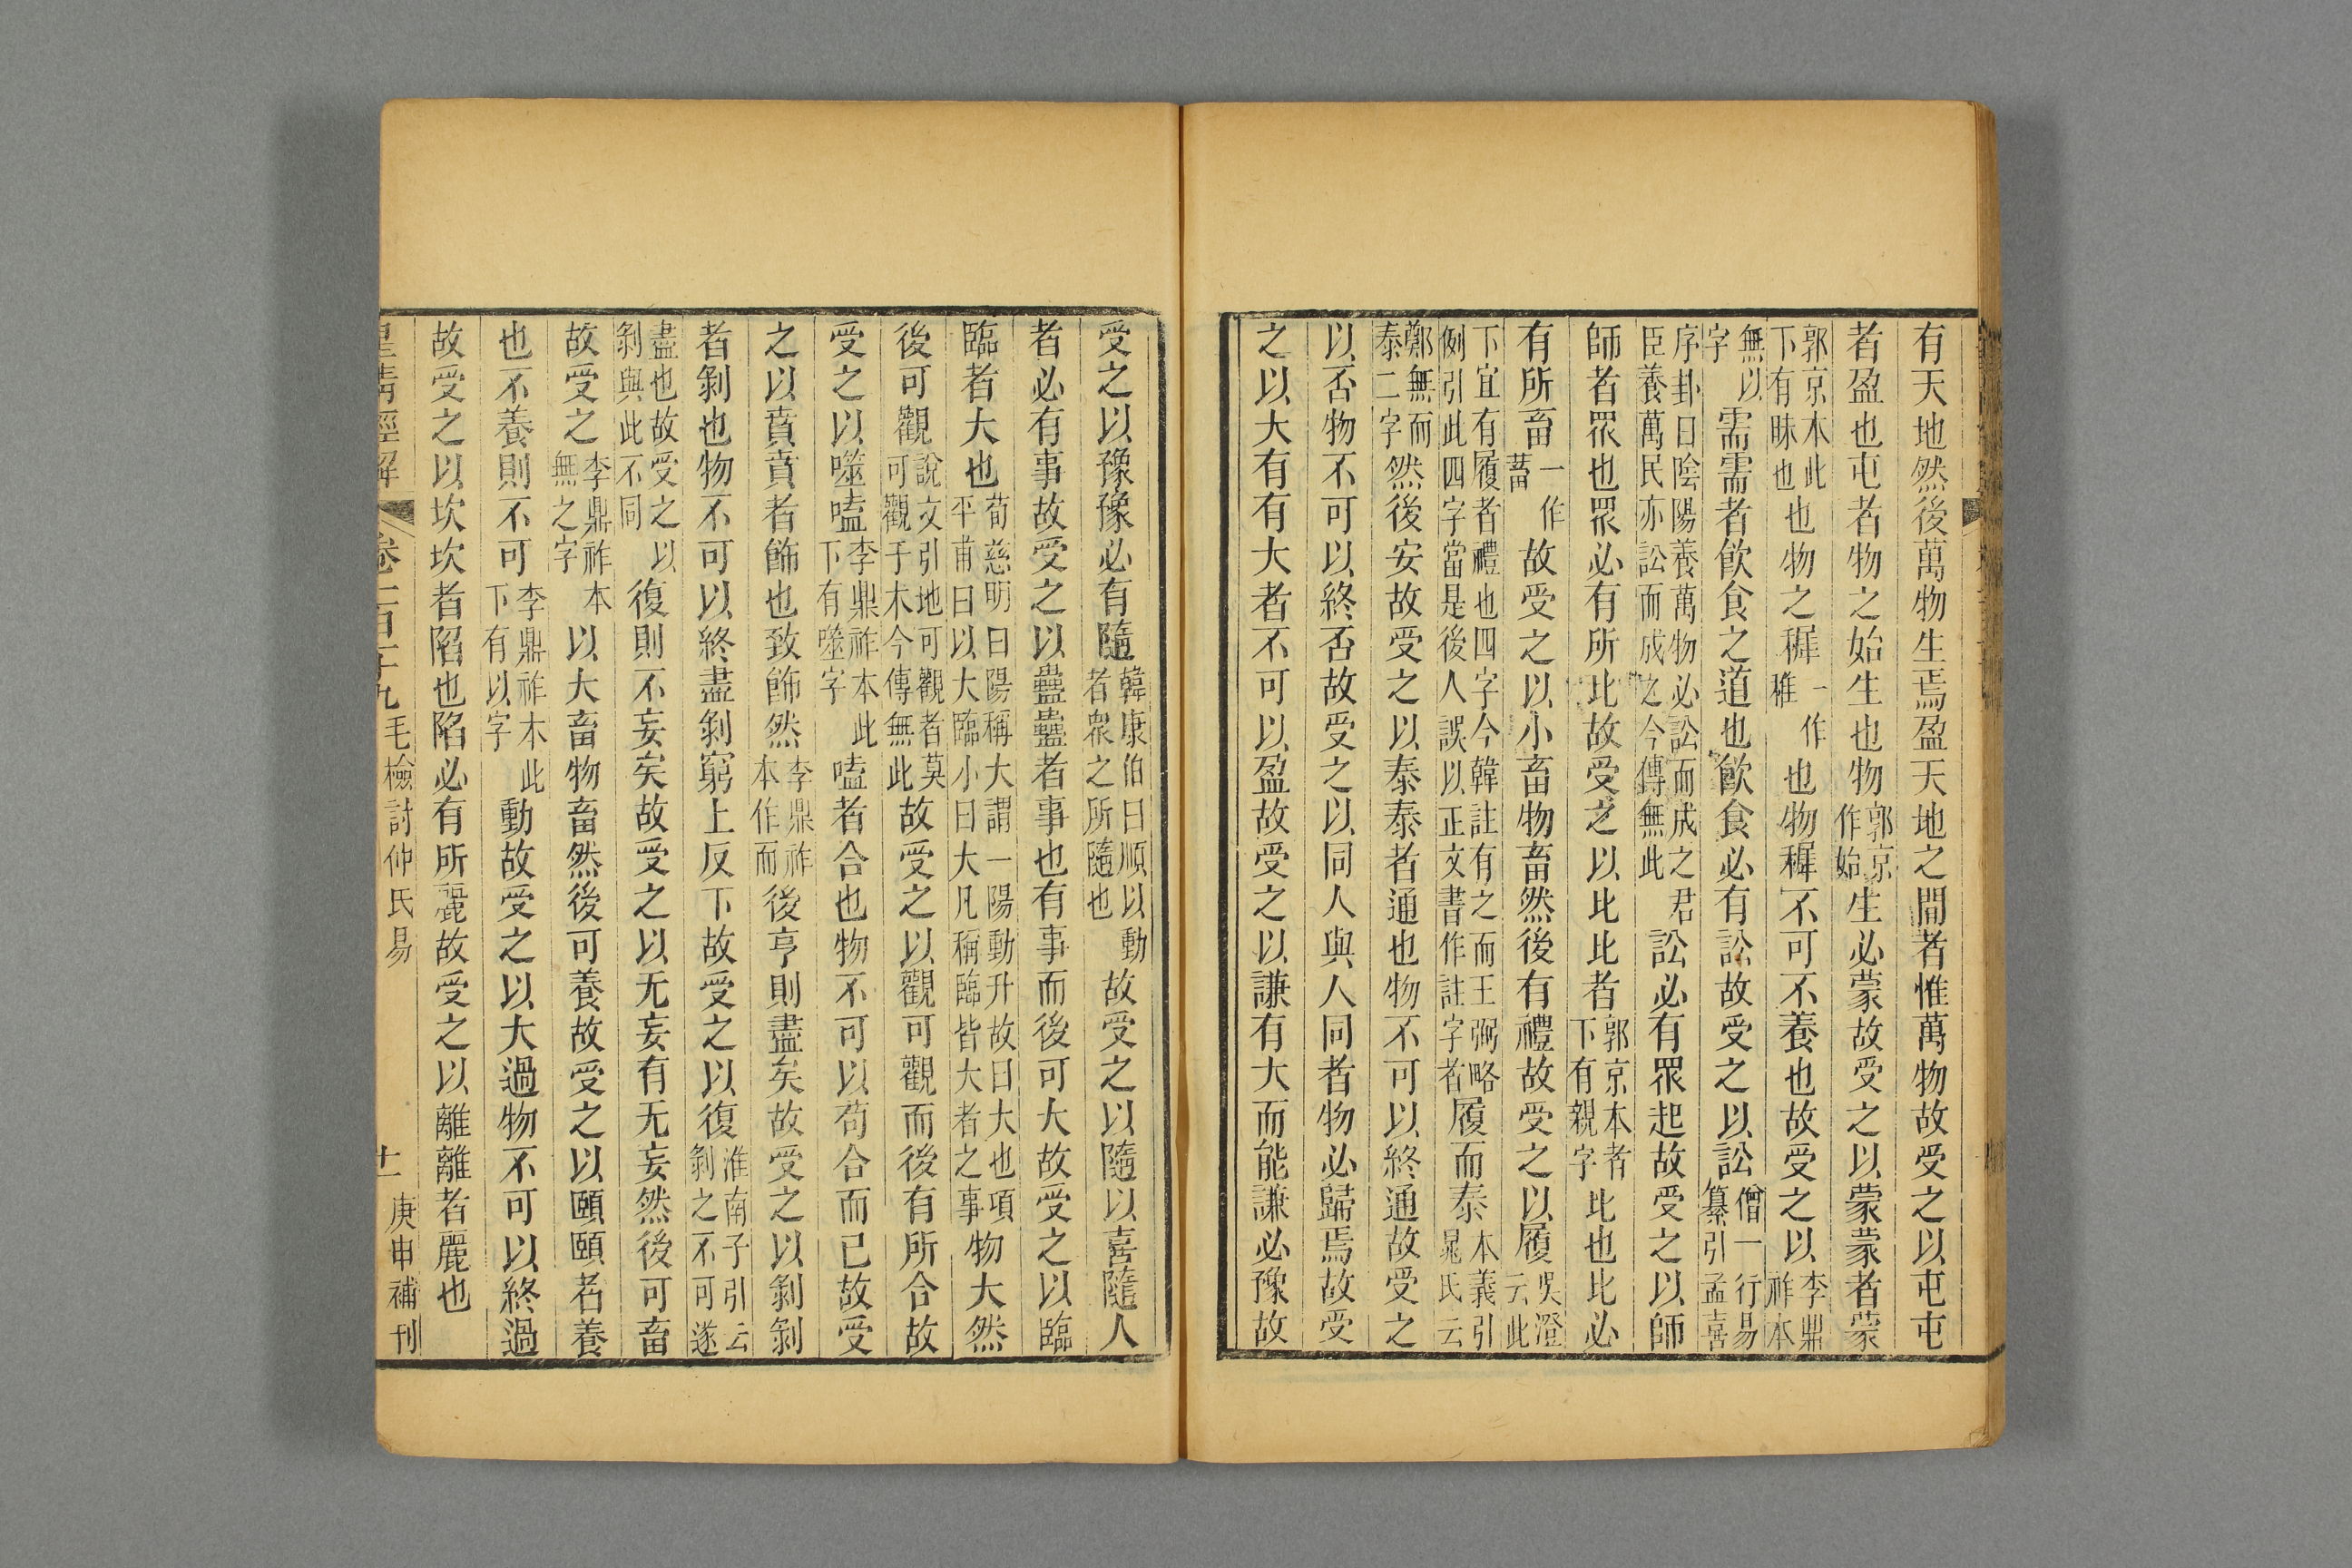 有天地然後萬物生焉盈天地之間者惟萬物故受之以屯屯
者盈也屯者物之始生也物郭京作始生必蒙故受之以蒙蒙者蒙
郭京本此下有昧也也物之穉一作稚也物穉不可不養也故受之以李鼎祚本
無以字需需者飲食之道也飲食必有訟故受之以訟僧一行易纂引孟喜
序卦曰陰陽養萬物必訟而成之君臣養萬民亦訟而成之今傳無此訟必有眾起故受之以師
師者眾也眾必有所比故受之以比比者郭京本者下有親字比也比必
有所畜一作蓄故受之以小畜物畜然後有禮故受之以履吳澄云此
下宜有履者禮也四字今韓註有之而王弼略例引此四字當是後人誤以正文書作註字者履而泰本義引晁氏云
鄭無而泰二字然後安故受之以泰泰者通也物不可以終通故受之
以否物不可以終否故受之以同人與人同者物必歸焉故受
之以大有有大者不可以盈故受之以謙有大而能謙必豫故
受之以豫豫必有隨韓康伯曰順以動者衆之所隨也故受之以隨以喜隨人
者必有事故受之以蠱蠱者事也有事而後可大故受之以臨
臨者大也荀慈明曰陽稱大謂一陽動升故曰大也項平甫曰以大臨小曰大凡稱臨皆大者之事物大然
後可觀說文引地可觀者莫可觀于木今傳無此故受之以觀可觀而後有所合故
受之以噬嗑李鼎祚本此下有噬字嗑者合也物不可以苟合而已故受
之以賁賁者飾也致飾然李鼎祚本作而後亨則盡矣故受之以剝剝
者剝也物不可以終盡剝窮上反下故受之以復淮南子引云剝之不可遂
盡也故受之以剝與此不同復則不妄矣故受之以无妄有无妄然後可畜
故受之李鼎祚本無之字以大畜物畜然後可養故受之以頤頤者養
也不養則不可李鼎祚本此下有以字動故受之以大過物不可以終過
故受之以坎坎者陷也陷必有所麗故受之以離離者麗也
皇清經解 卷一百二十九 毛檢討仲氏易 十一 庚申補刊